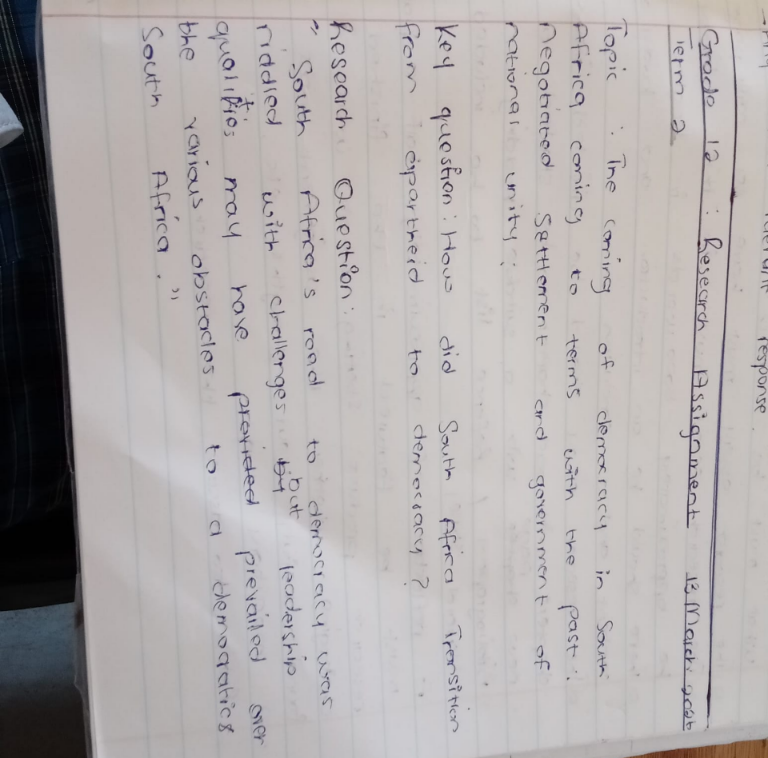 response
Grade 12 : Research Assignment 13 March 2026
Term 2
Topic : The coming of democracy in South
Africa coming to terms with the past :
negotiated settlement and government of
national unity :
Key question: How did South Africa Transition
from apartheid to democracy ?
Research Question :
" South Africa's road to democracy was
riddled with challenges but leadership
qualities may have prevailed over
the various obstacles to a democratics
South Africa . "